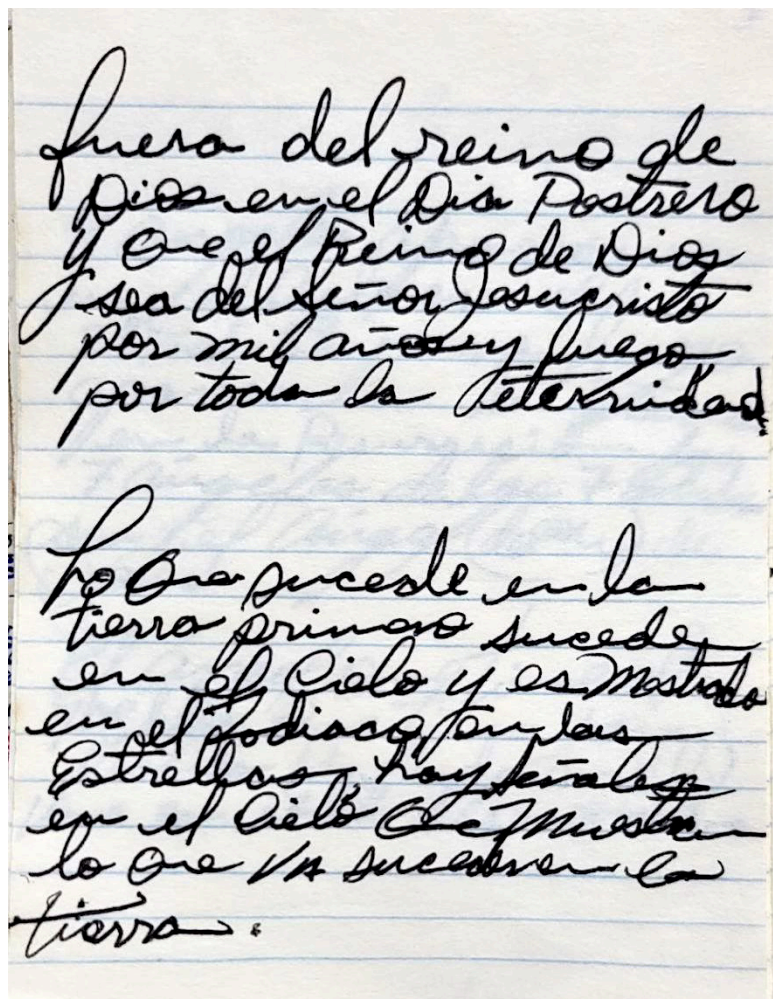 fuera del reino de
Dios en el Dia Postrero
y que el Reino de Dios
sea del Señor Jesucristo
por mil años y luego
por toda la eternidad.
Lo que sucede en la
tierra primero sucede
en el Cielo y es Mostrado
en el Zodiaco, en las
Estrellas, hay señales
en el Cielo que Muestran
lo que VA suceder en la
tierra.